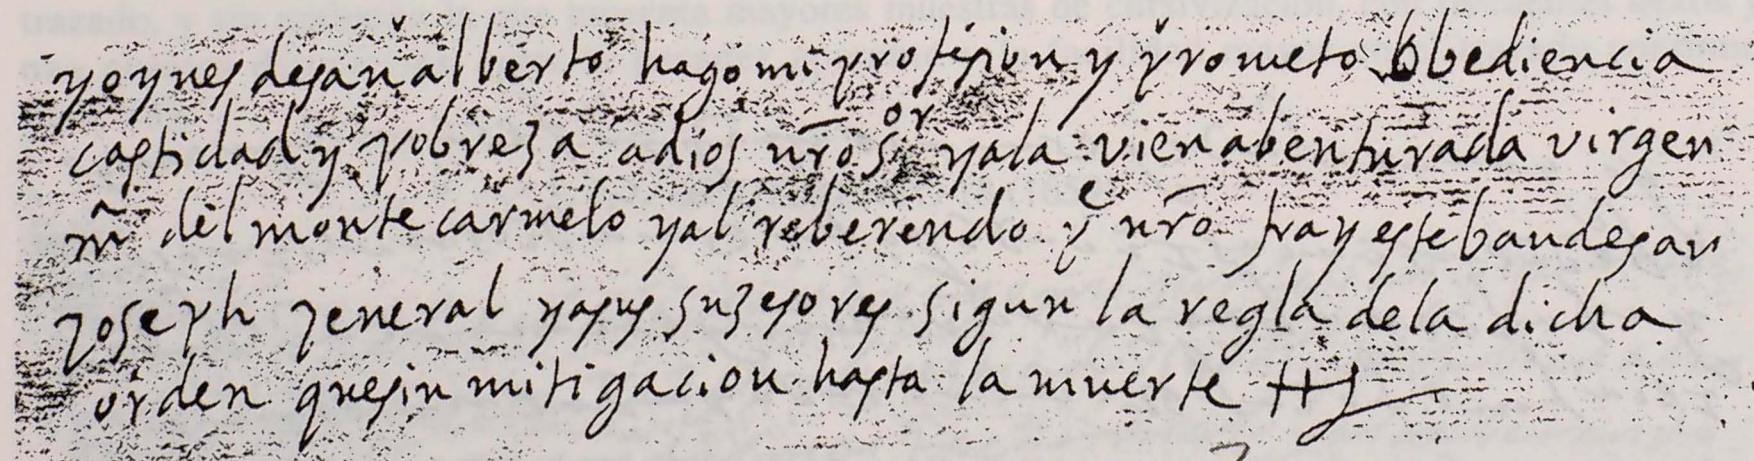 yo ynes desan alberto hago mi profision y prometo obbediencia
castidad y pobreza adios nr̃o s.or yala vienabenturada virgen
m̃ del monte carmelo yal reberendo pe nr̃o fray esteban desan
joseph jeneral yasus suzesores sigun la regla dela dicha
orden quesin mitigacion hasta la muerte